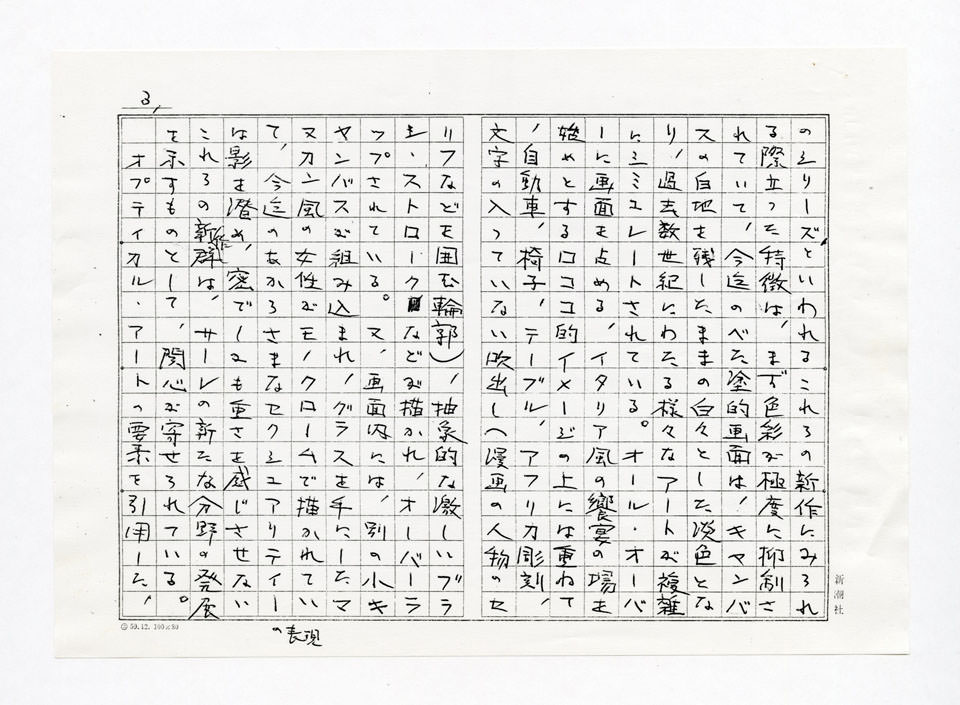 3,
のシリーズといわれるこれらの新作にみられ
る際立った特徴は、まず色彩が極度に抑制さ
れていて、今迄のべた塗的画面は、キャンバ
スの白地を残したままの白々とした淡色とな
り、過去数世紀にわたる様々なアートが複雑
にシミュレートされている。オール・オーバ
ーに画面を占める、イタリア風の饗宴の場を
始めとするロココ的イメージの上には重ねて
、自動車、椅子、テーブル、アフリカ彫刻、
文字の入っていない吹出し(漫画の人物のセ
リフなどを囲む輪郭)、抽象的な激しいブラ
シ・ストロークなどが描かれ、オーバーラ
ップされている。又、画面内には、別の小キ
ャンバスが組み込まれ、グラスを手にしたマ
ヌカン風の女性がモノクロームで描かれてい
て、今迄のあからさまなセクシュアリティー
の表現
は影を潜め、密でしかも重さを感じさせない
これらの新作群は、サーレの新たな分野の発展
を示すものとして、関心が寄せられている。
オプティカル・アートの要素を引用した、
新潮社
50.12.100×80